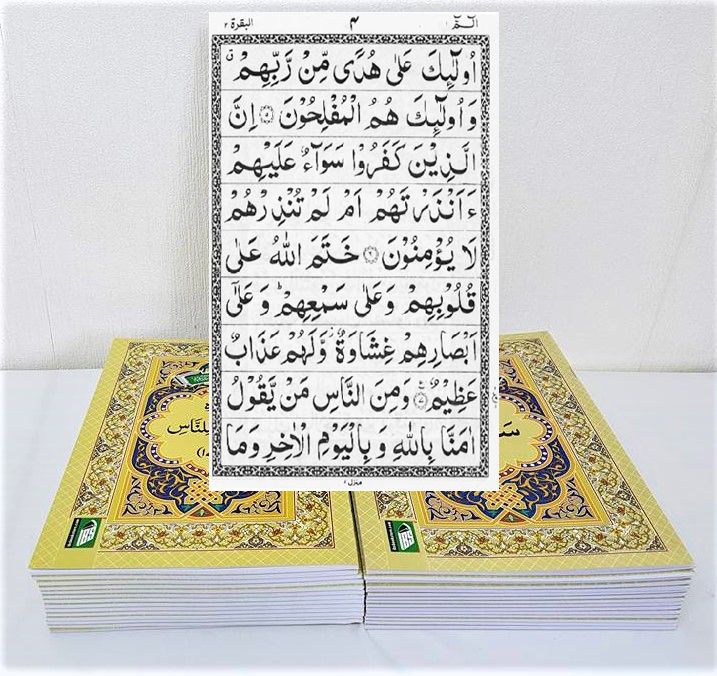 الٓمّٓ ۱ ۴ البقرة ۲
اُولٰٓئِكَ عَلٰى هُدًى مِّنْ رَّبِّهِمْ ۙ
وَ اُولٰٓئِكَ هُمُ الْمُفْلِحُوْنَ ۝۵ اِنَّ
الَّذِيْنَ كَفَرُوْا سَوَآءٌ عَلَيْهِمْ
ءَاَنْذَرْتَهُمْ اَمْ لَمْ تُنْذِرْهُمْ
لَا يُؤْمِنُوْنَ ۝۶ خَتَمَ اللّٰهُ عَلٰى
قُلُوْبِهِمْ وَعَلٰى سَمْعِهِمْ ؕ وَ عَلٰٓى
اَبْصَارِهِمْ غِشَاوَةٌ ۫ وَّلَهُمْ عَذَابٌ
عَظِيْمٌ ۝۷ وَمِنَ النَّاسِ مَنْ يَّقُوْلُ
اٰمَنَّا بِاللّٰهِ وَ بِالْيَوْمِ الْاٰخِرِ وَمَا
منزل ۱
لِلنَّاسِ
IBS
IBS